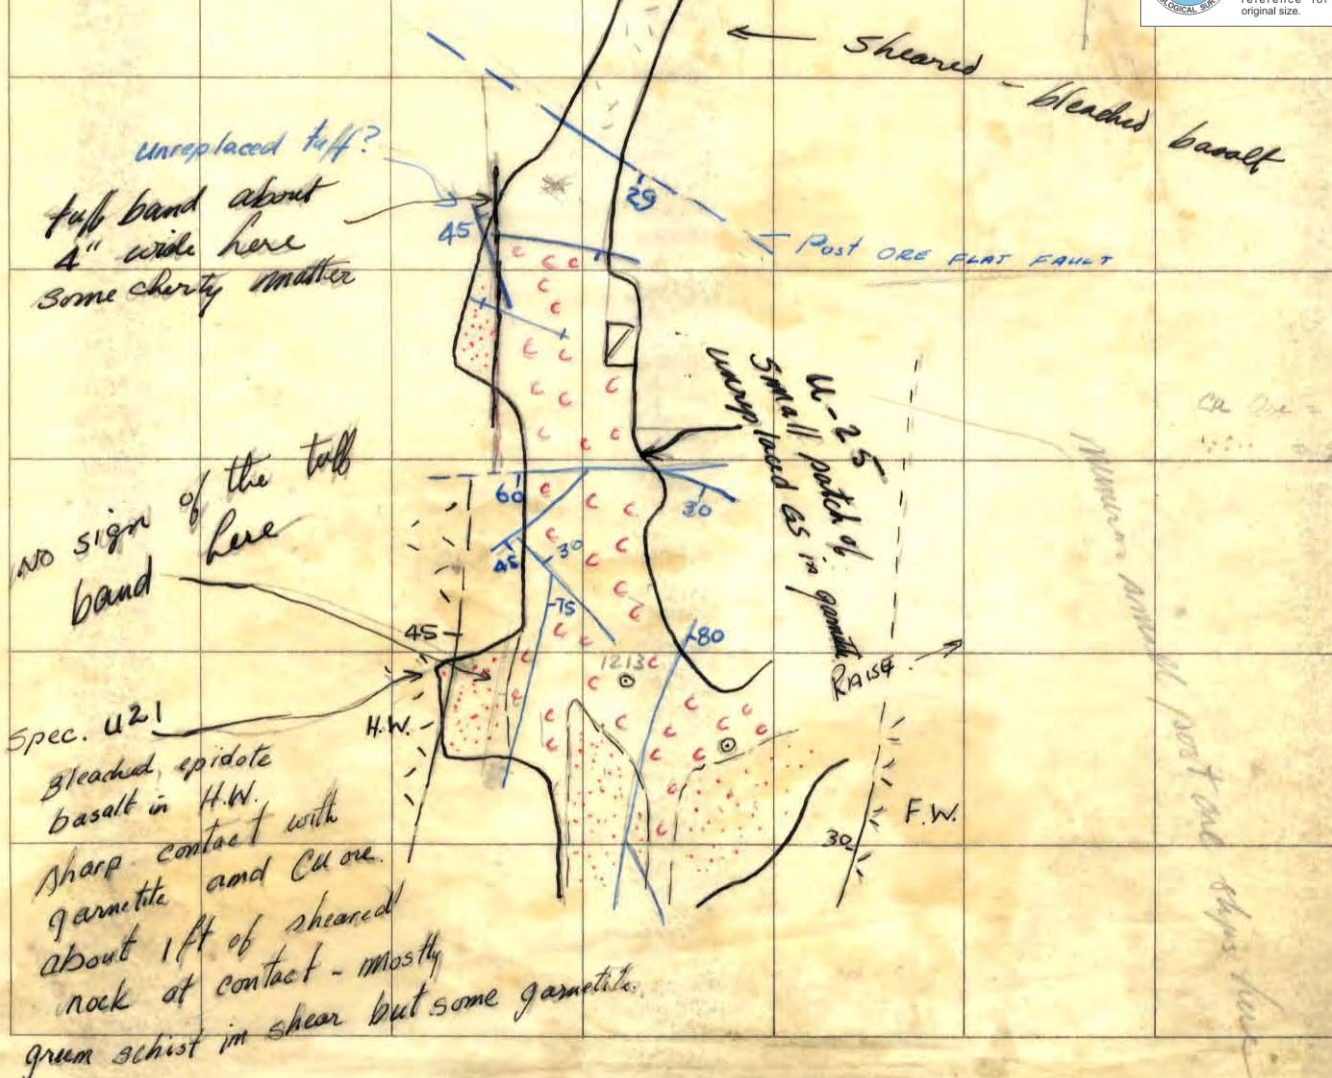 OLOGICAL SUR
reference for
original size.
sheared - bleached basalt
unreplaced tuff?
tuff band about
4" wide here
some cherty matter
45
29
Post ORE FLAT FAULT
U-25
small patch of
unreplaced GS in garnetite
Cu Ore =
No sign of the tuff
band here
60
30
45
30
75
80
45
1213
RAISE
H.W.
Spec. U21
Bleached, epidote
basalt in H.W.
sharp contact with
garnetite and Cu ore.
about 1 ft of sheared
rock at contact - mostly
green schist in shear but some garnetite.
F.W.
30
post ore slips here